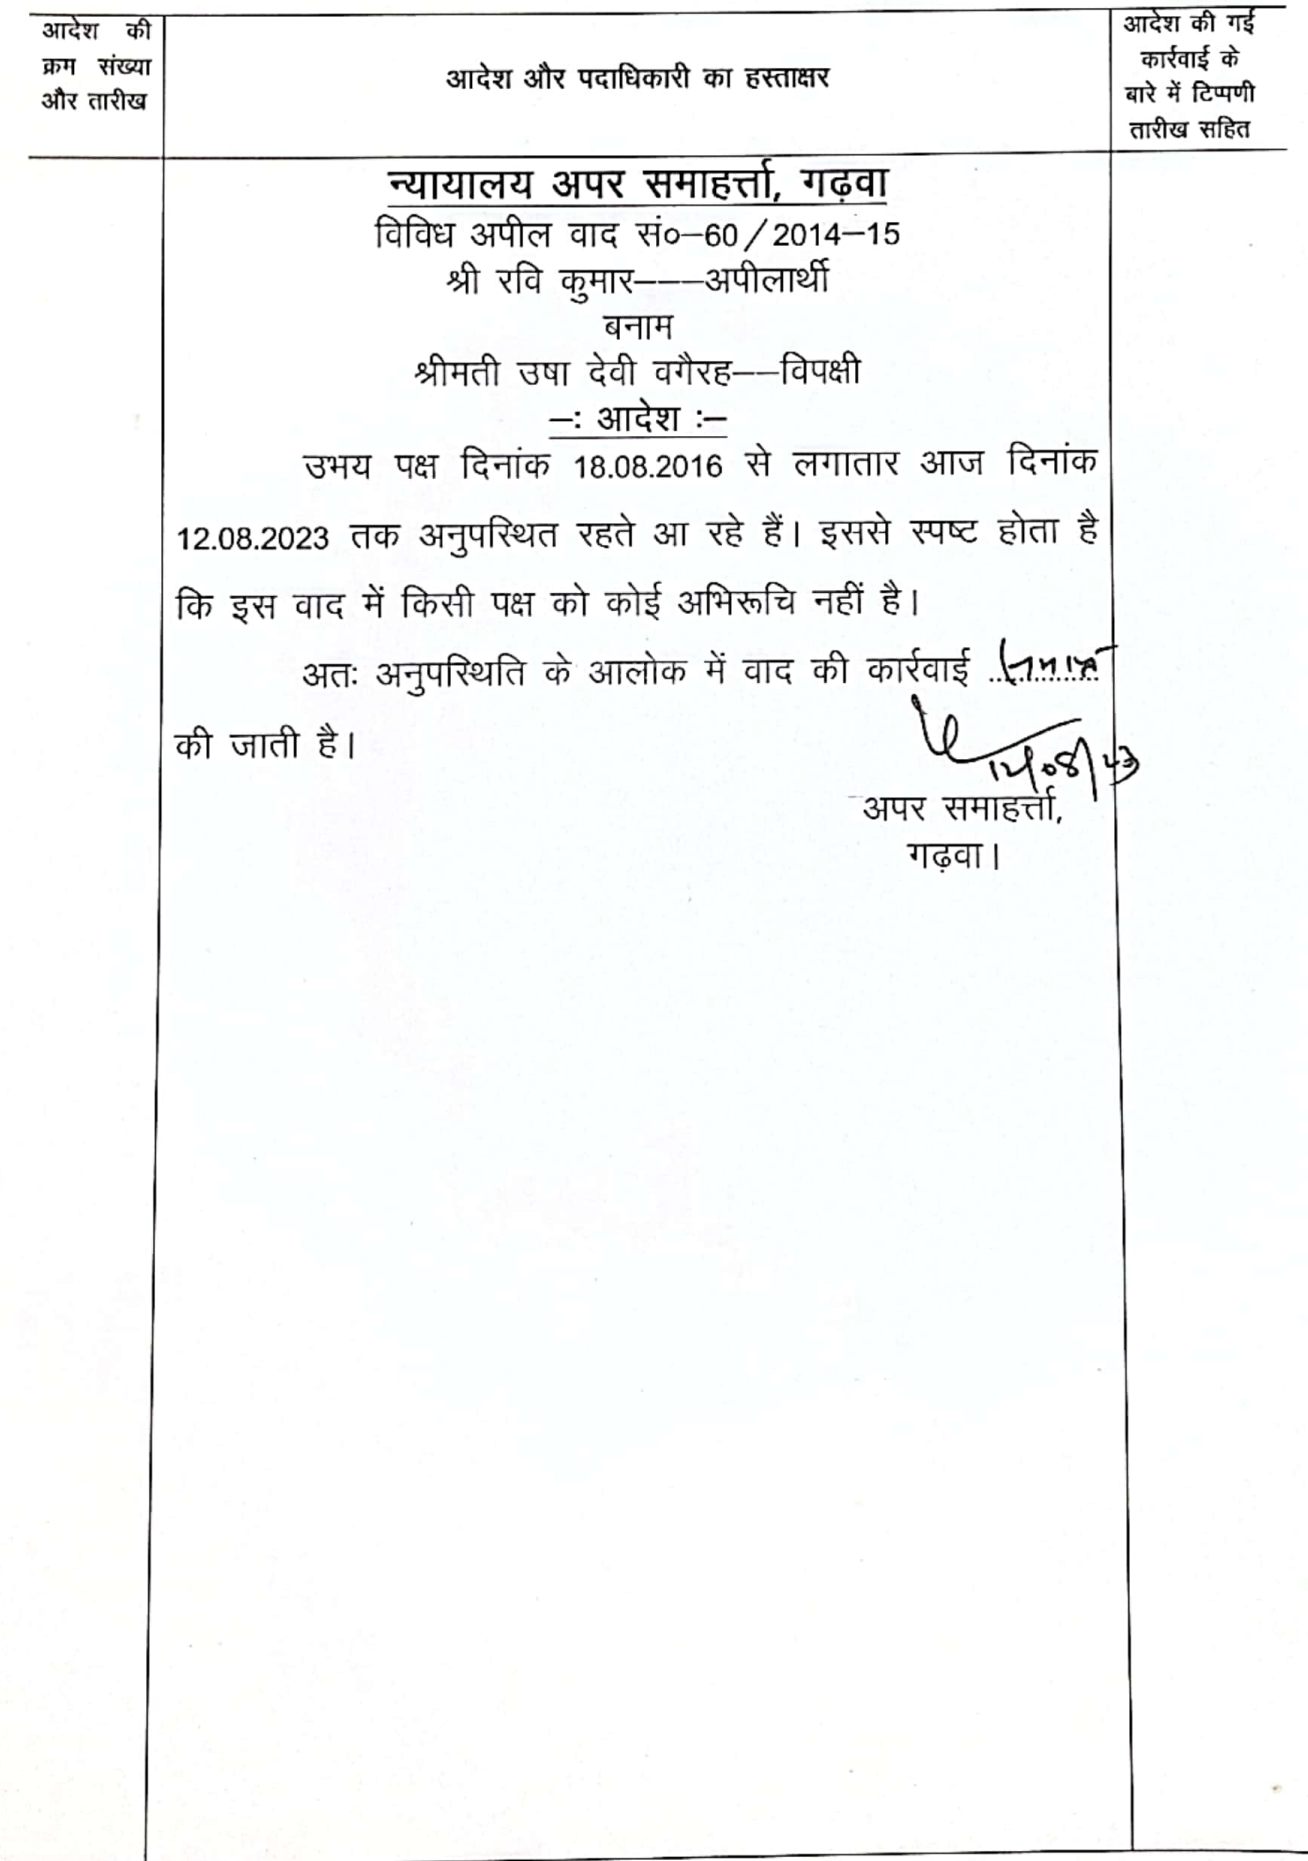 आदेश की
क्रम संख्या
और तारीख
आदेश और पदाधिकारी का हस्ताक्षर
आदेश की गई
कार्रवाई के
बारे में टिप्पणी
तारीख सहित
न्यायालय अपर समाहर्त्ता, गढ़वा
विविध अपील वाद सं०–60/2014–15
श्री रवि कुमार–––अपीलार्थी
बनाम
श्रीमती उषा देवी वगैरह––विपक्षी
–: आदेश :–
उभय पक्ष दिनांक 18.08.2016 से लगातार आज दिनांक
12.08.2023 तक अनुपस्थित रहते आ रहे हैं। इससे स्पष्ट होता है
कि इस वाद में किसी पक्ष को कोई अभिरूचि नहीं है।
अतः अनुपस्थिति के आलोक में वाद की कार्रवाई
की जाती है।
12/08/23
अपर समाहर्त्ता,
गढ़वा।